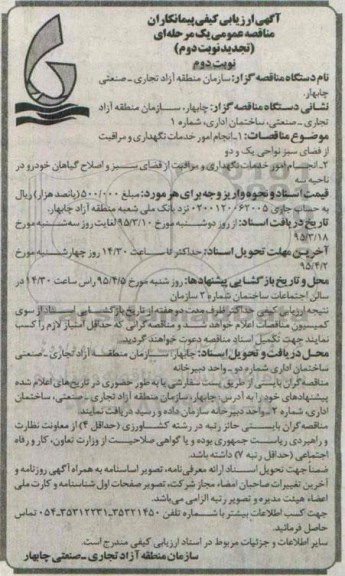 آگهی ارزیابی کیفی پیمانکاران
مناقصه عمومی یک مرحله ای
(تجدید نوبت دوم)
نوبت دوم
نام دستگاه مناقصه گزار: سازمان منطقه آزاد تجاری ـ صنعتی
چابهار.
نشانی دستگاه مناقصه گزار: چابهار، سازمان منطقه آزاد
تجاری ـ صنعتی، ساختمان اداری، شماره ۱
موضوع مناقصات: ۱ـ انجام امور خدمات نگهداری و مراقبت
از فضای سبز نواحی یک و دو
۲ـ انجام امور خدمات نگهداری و مراقبت از فضای سبز و اصلاح گیاهان خودرو در
ناحیه سه
قیمت اسناد و نحوه واریز وجه برای هر مورد: مبلغ ۵۰۰/۰۰۰ (پانصد هزار) ریال
به حساب جاری ۰۲۰۰۱۲۰۰۶۲۰۰۵ نزد بانک ملی شعبه منطقه آزاد چابهار.
تاریخ دریافت اسناد: از روز دوشنبه مورخ ۹۵/۳/۱۰ لغایت روز سه‌شنبه مورخ
۹۵/۳/۱۸
آخرین مهلت تحویل اسناد: حداکثر تا ساعت ۱۴/۳۰ روز چهارشنبه مورخ
۹۵/۴/۲
محل و تاریخ بازگشایی پیشنهادها: روز شنبه مورخ ۹۵/۴/۵ راس ساعت ۱۴/۳۰ در
سالن اجتماعات ساختمان شماره ۳ سازمان
نتیجه ارزیابی کیفی حداکثر ظرف مدت دو هفته از تاریخ بازگشایی اسناد از سوی
کمیسیون مناقصات اعلام خواهد شد و مناقصه گرانی که حداقل امتیاز لازم را کسب
نمایند جهت تکمیل اسناد مناقصه دعوت خواهند گردید.
محل دریافت و تحویل اسناد: چابهار، سازمان منطقه آزاد تجاری ـ صنعتی
ساختمان اداری شماره دو ـ واحد دبیرخانه
مناقصه‌گران بایستی از طریق پست سفارشی یا به طور حضوری در تاریخ‌های اعلام شده
پیشنهادهای خود را به آدرس: چابهار، سازمان منطقه آزاد تجاری ـ صنعتی، ساختمان
اداری، شماره ۲ ـ واحد دبیرخانه سازمان داده و رسید دریافت نمایند.
مناقصه‌گران بایستی حائز رتبه در رشته کشاورزی (حداقل ۴) از معاونت نظارت
و راهبردی ریاست جمهوری بوده و یا گواهی صلاحیت از وزارت تعاون، کار و رفاه
اجتماعی (حداقل رتبه ۷) داشته باشد.
ضمناً جهت تحویل اسناد ارائه معرفی‌نامه، تصویر اساسنامه به همراه آگهی روزنامه و
آخرین تغییرات صاحبان امضاء مجاز شرکت، تصویر صفحات اول شناسنامه و کارت ملی
اعضاء هیئت مدیره و تصویر رتبه الزامی می‌باشد.
جهت کسب اطلاعات بیشتر با شماره تلفن ۳۵۳۲۱۴۵۰ـ۳۵۳۱۲۲۳۱ـ۰۵۴ تماس
حاصل فرمائید.
سایر اطلاعات و جزئیات مربوط در اسناد ارزیابی کیفی مندرج است.
سازمان منطقه آزاد تجاری ـ صنعتی چابهار